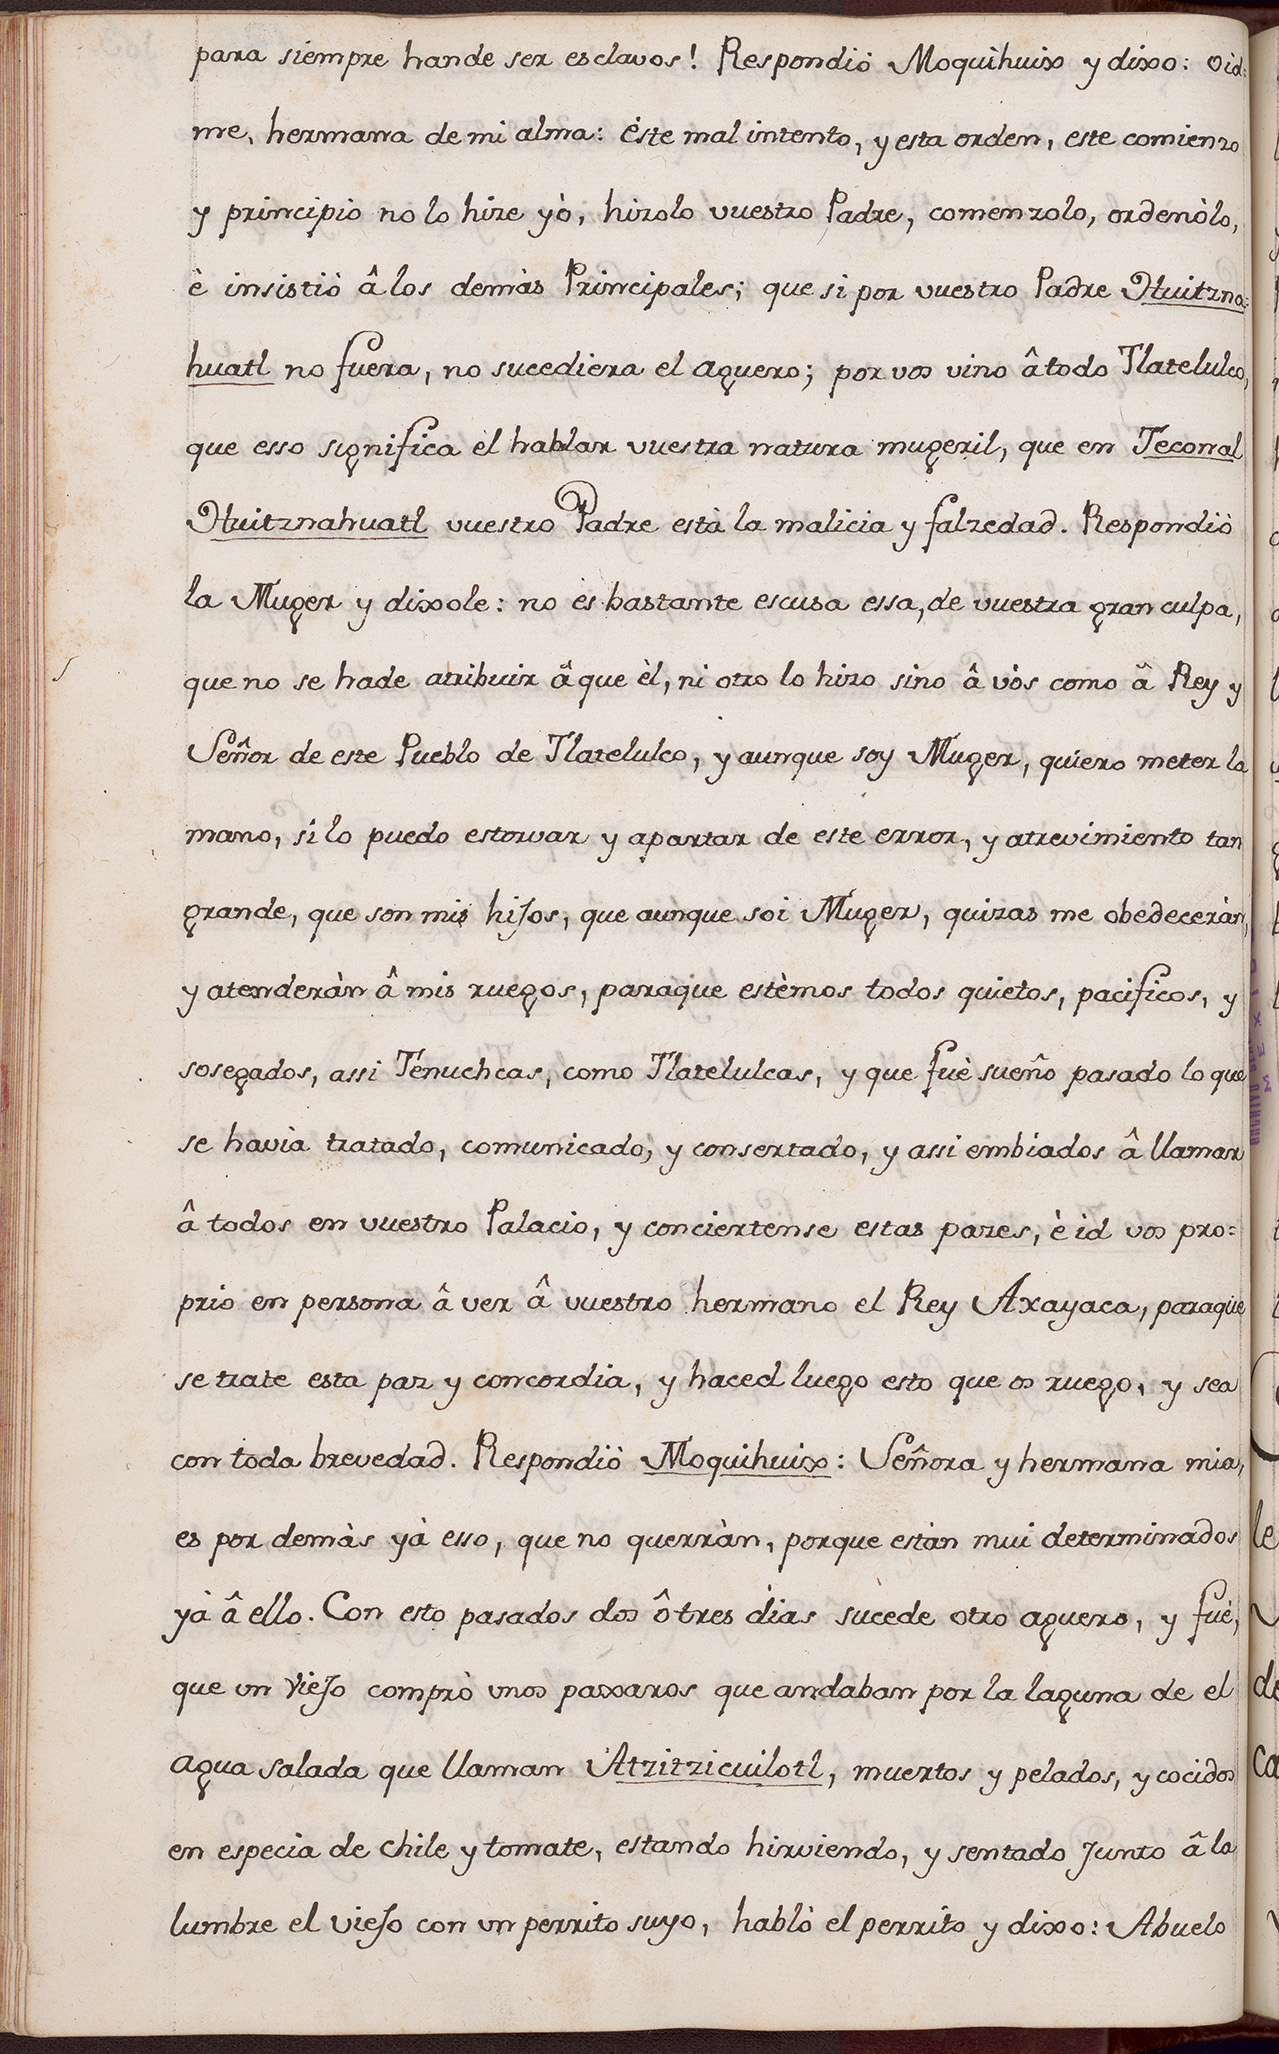 para siempre hande ser esclavos! Respondiò Moquihuix y dixo: oid=
me, hermana de mi alma: éste mal intento, y esta orden, este comienzo
y principio no lo hize yò, hizolo vuestro Padre, comenzolo, ordenòlo,
è insistiò â los demàs Principales; que si por vuestro Padre Huitzna=
huatl no fuera, no sucediera el aguero; por vos vino â todo Tlatelulco,
que esso significa el hablar vuestra natura mugeril, que en Teconal
Huitznahuatl vuestro Padre està la malicia y falzedad. Respondiò
la Muger y dixole: no es bastante escusa essa, de vuestra gran culpa,
que no se hade atribuir â que èl, ni otro lo hizo sino â vòs como â Rey y
Señor de este Pueblo de Tlatelulco, y aunque soy Muger, quiero meter la
mano, si lo puedo estorvar y apartar de este error, y atrevimiento tan
grande, que son mis hijos, que aunque soi Muger, quizas me obedeceràn,
y atenderàn â mis ruegos, paraque estèmos todos quietos, pacificos, y
sosegados, assi Tenuchcas, como Tlatelulcas, y que fuè sueño pasado lo que
se havia tratado, comunicado, y consertado, y assi embiados â llamar
â todos en vuestro Palacio, y conciertense estas pazes, è id vos pro=
prio en persona â ver â vuestro hermano el Rey Axayaca, paraque
se trate esta paz y concordia, y haced luego esto que os ruego, y sea
con toda brevedad. Respondiò Moquihuix: Señora y hermana mia,
es por demàs yà esso, que no querràn, porque estàn mui determinados
yà â ello. Con esto pasados dos ô tres dias sucede otro aguero, y fuè,
que un viejo comprò unos paxaros que andaban por la laguna de el
agua salada que llaman Atzitzicuilotl, muertos y pelados, y cocidos
en especia de chile y tomate, estando hirviendo, y sentado junto â la
lumbre el viejo con un perrito suyo, hablò el perrito y dixo: Abuelo